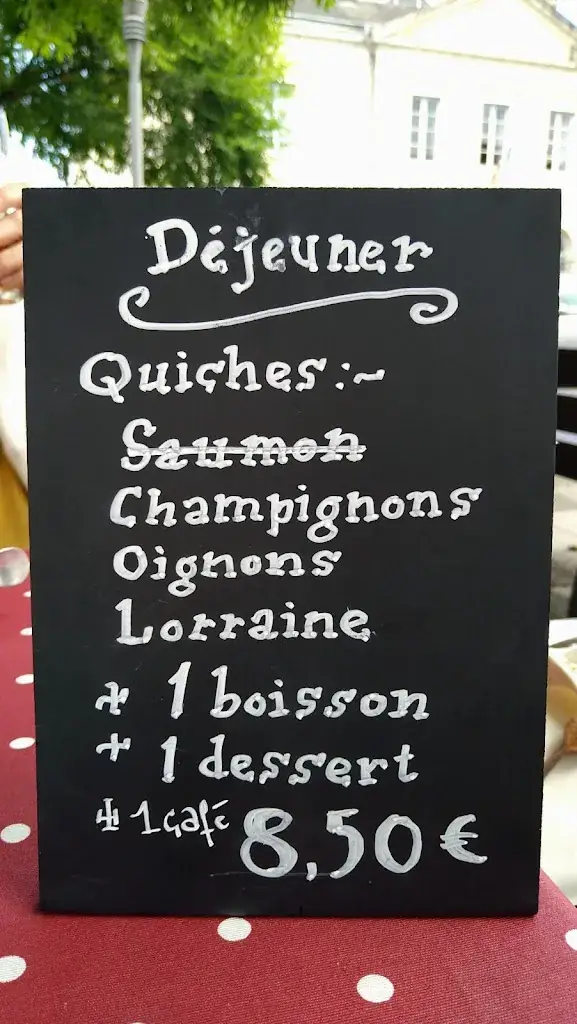 Déjeuner
Quiches :~
Saumon
Champignons
Oignons
Lorraine
+ 1 boisson
+ 1 dessert
+ 1 café 8,50 €